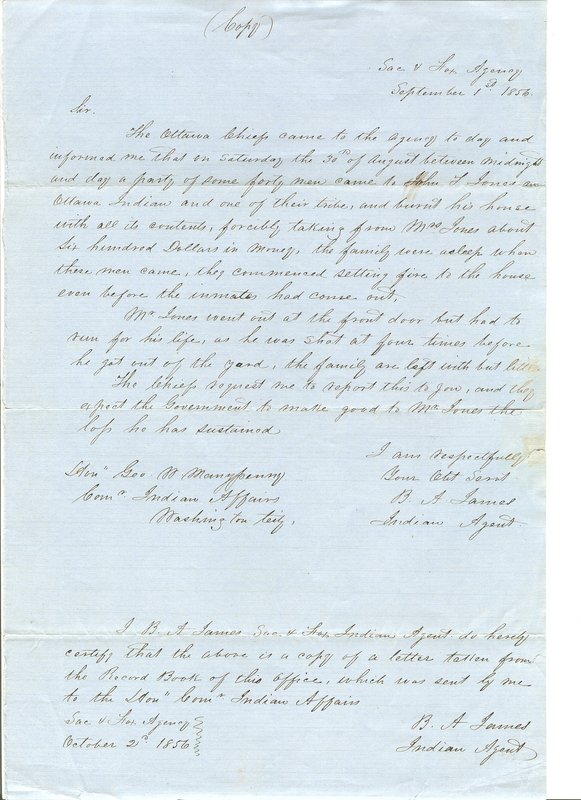 (Copy)
Sac & Fox Agency
September 1st 1856
Sir.
The Ottawa Chiefs came to the Agency to day and
informed me that on Saturday the 30th of August between midnight
and day a party of some forty men came to John T Jones an
Ottawa Indian and one of their tribe, and burnt his house
with all its contents, forcibly taking from Mrs Jones about
Six hundred Dollars in money, the family were asleep when
these men came, they commenced setting fire to the house
even before the inmates had come out,
Mr Jones went out at the front door but had to
run for his life, as he was shot at four times before
he got out of the yard, the family are left with but little
The Chiefs request me to report this to you, and they
expect the Government to make good to Mr Jones the
loss he has sustained
I am respectfully
Your Obt Servt
Honl Geo W Manypenny
B A James
Comr Indian Affairs
Indian Agent
Washington City,
I B. A James Sac & Fox Indian Agent do hereby
certify that the above is a copy of a letter taken from
the Record Book of this Office, which was sent by me
to the Honl Comr Indian Affairs
Sac & Fox Agency
October 2d 1856
B. A James
Indian Agent